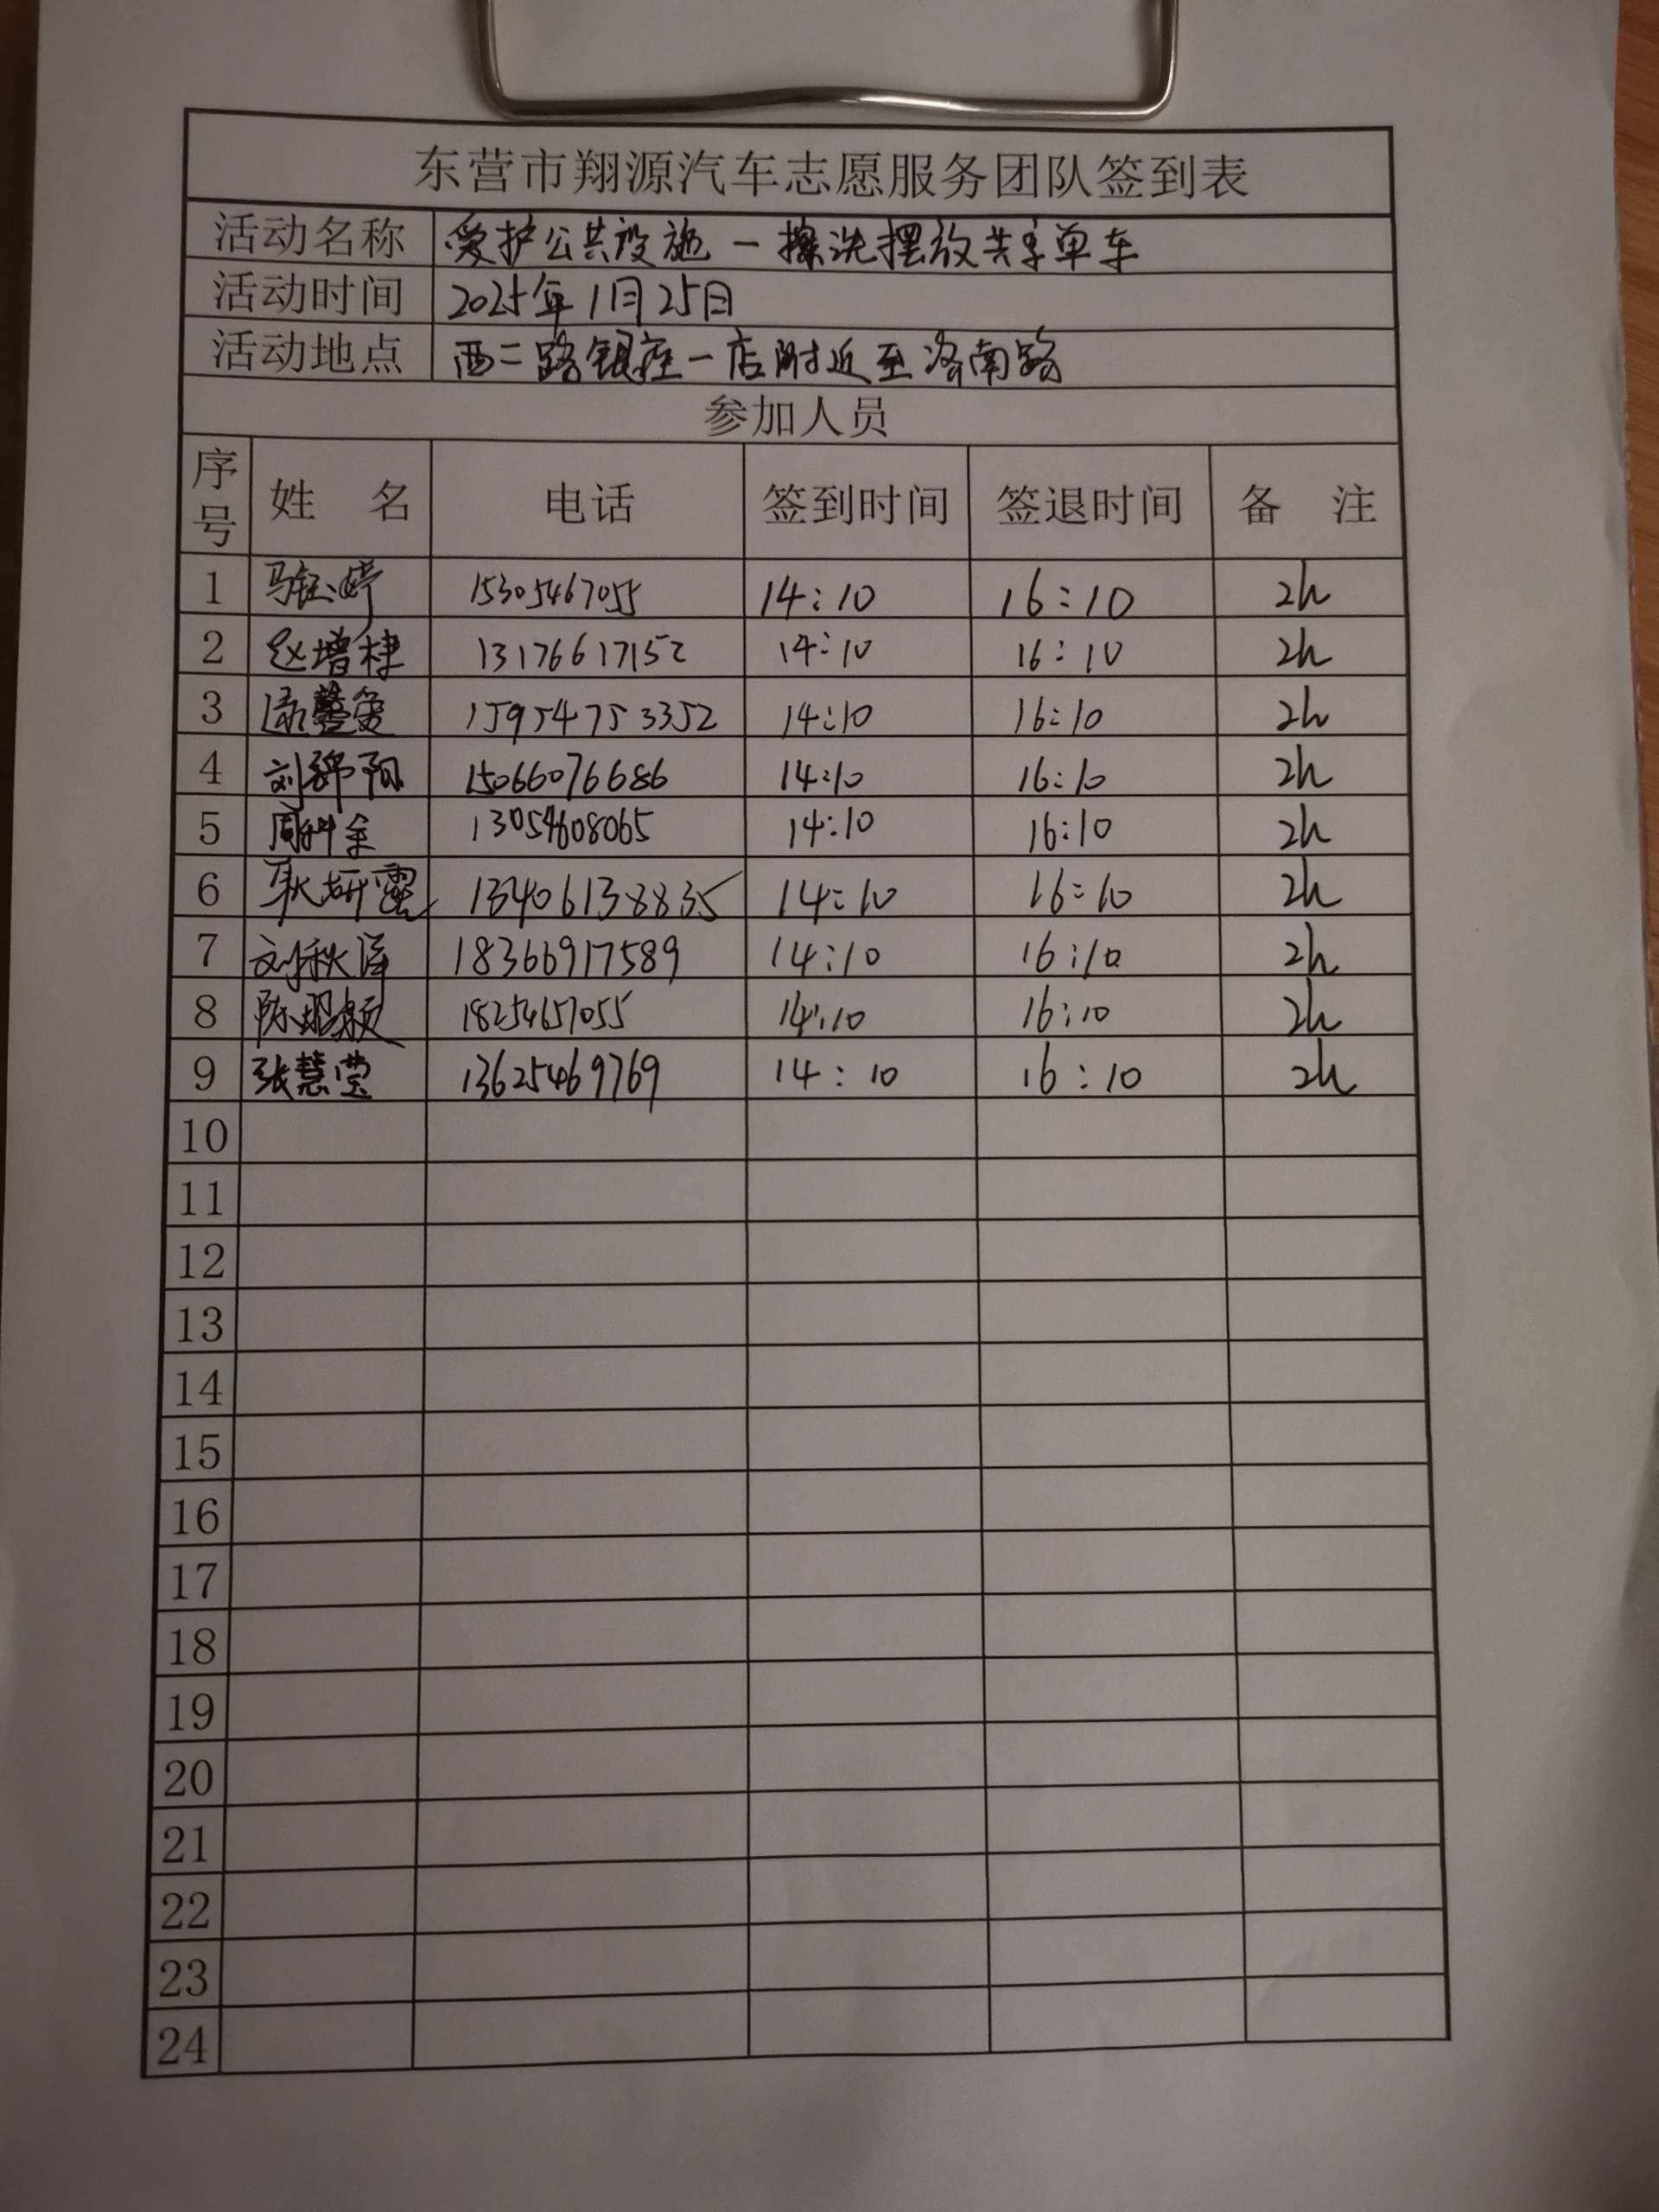 东营市翔源汽车志愿服务团队签到表
活动名称 爱护公共设施一擦洗摆放共享单车
活动时间 2025年1月25日
活动地点 西二路银座一店附近至济南路
参加人员
序号 姓 名 电话 签到时间 签退时间 备 注
1 马钰婷 15305467055 14:10 16:10 2h
2 赵增棣 13176617152 14:10 16:10 2h
3 15954753352 14:10 16:10 2h
4 刘 阳 15066076686 14:10 16:10 2h
5 周科全 13054608065 14:10 16:10 2h
6 耿妍露 13406138835 14:10 16:10 2h
7 刘秋 18366917589 14:10 16:10 2h
8 陈 颖 18254657055 14:10 16:10 2h
9 张慧莹 13625469769 14:10 16:10 2h
10
11
12
13
14
15
16
17
18
19
20
21
22
23
24